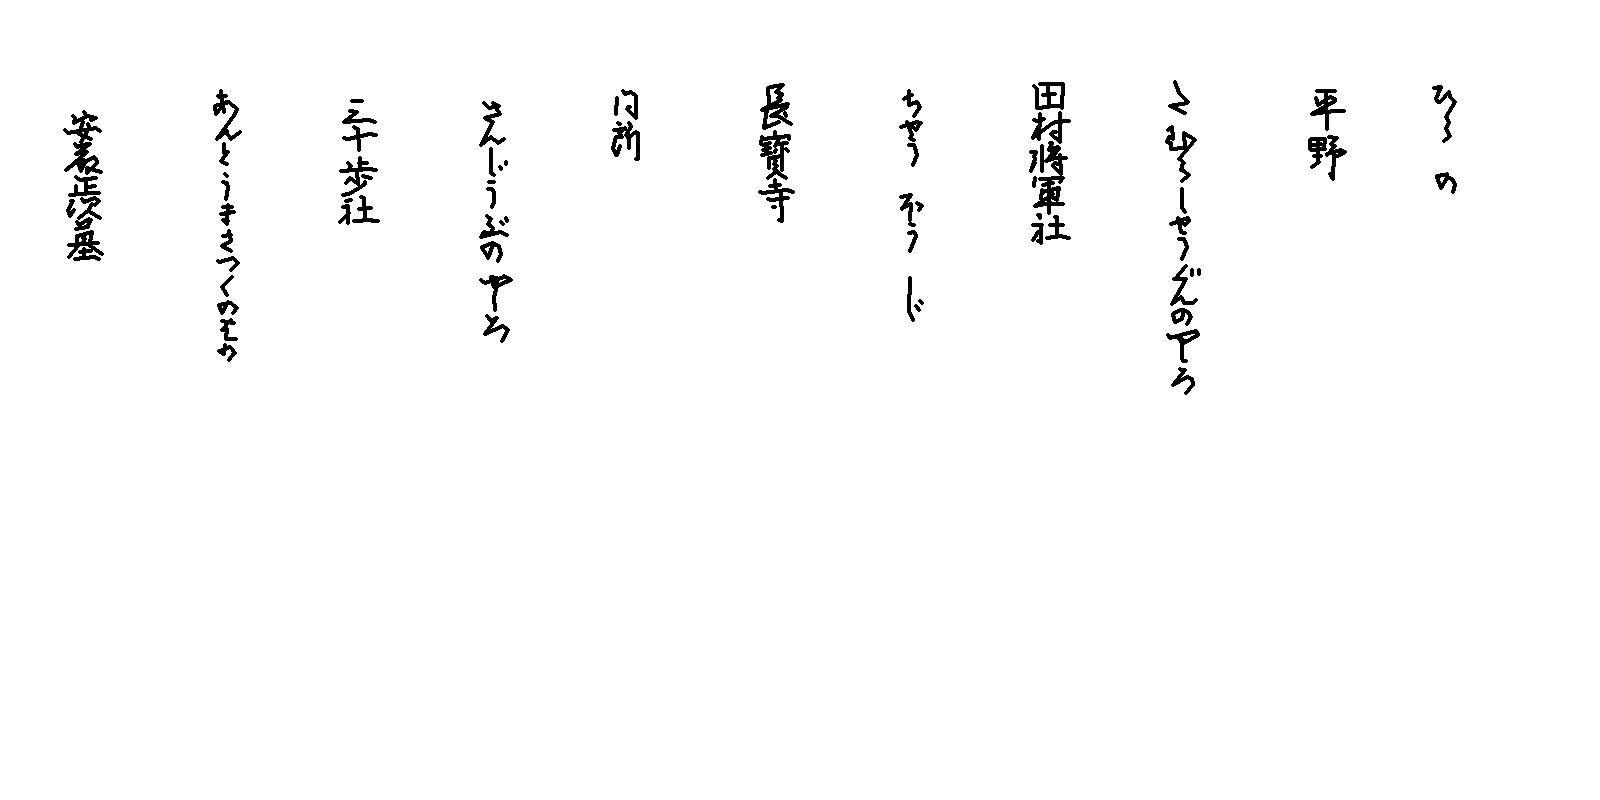 ひらの
平野
たむらしやうぐんのやしろ
田村將軍社
ちやうほうじ
長寶寺
同所
さんじうぶのやしろ
三十歩社
あんとうまさつくのはか
安藤正次墓